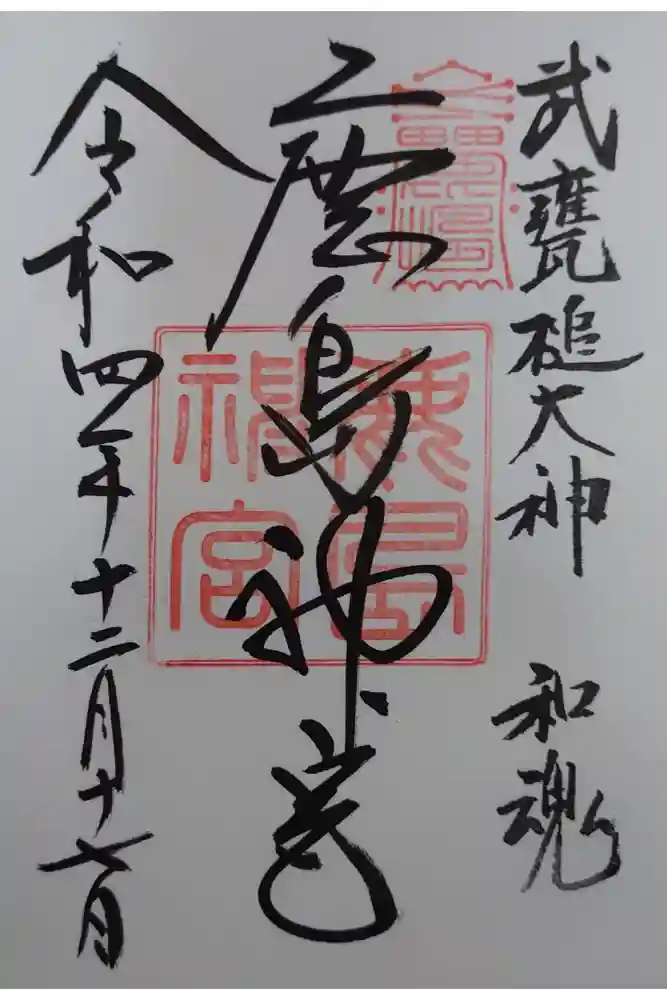 武甕槌大神 和魂
鹿島神宮
鹿島神宮
令和四年十二月十七日